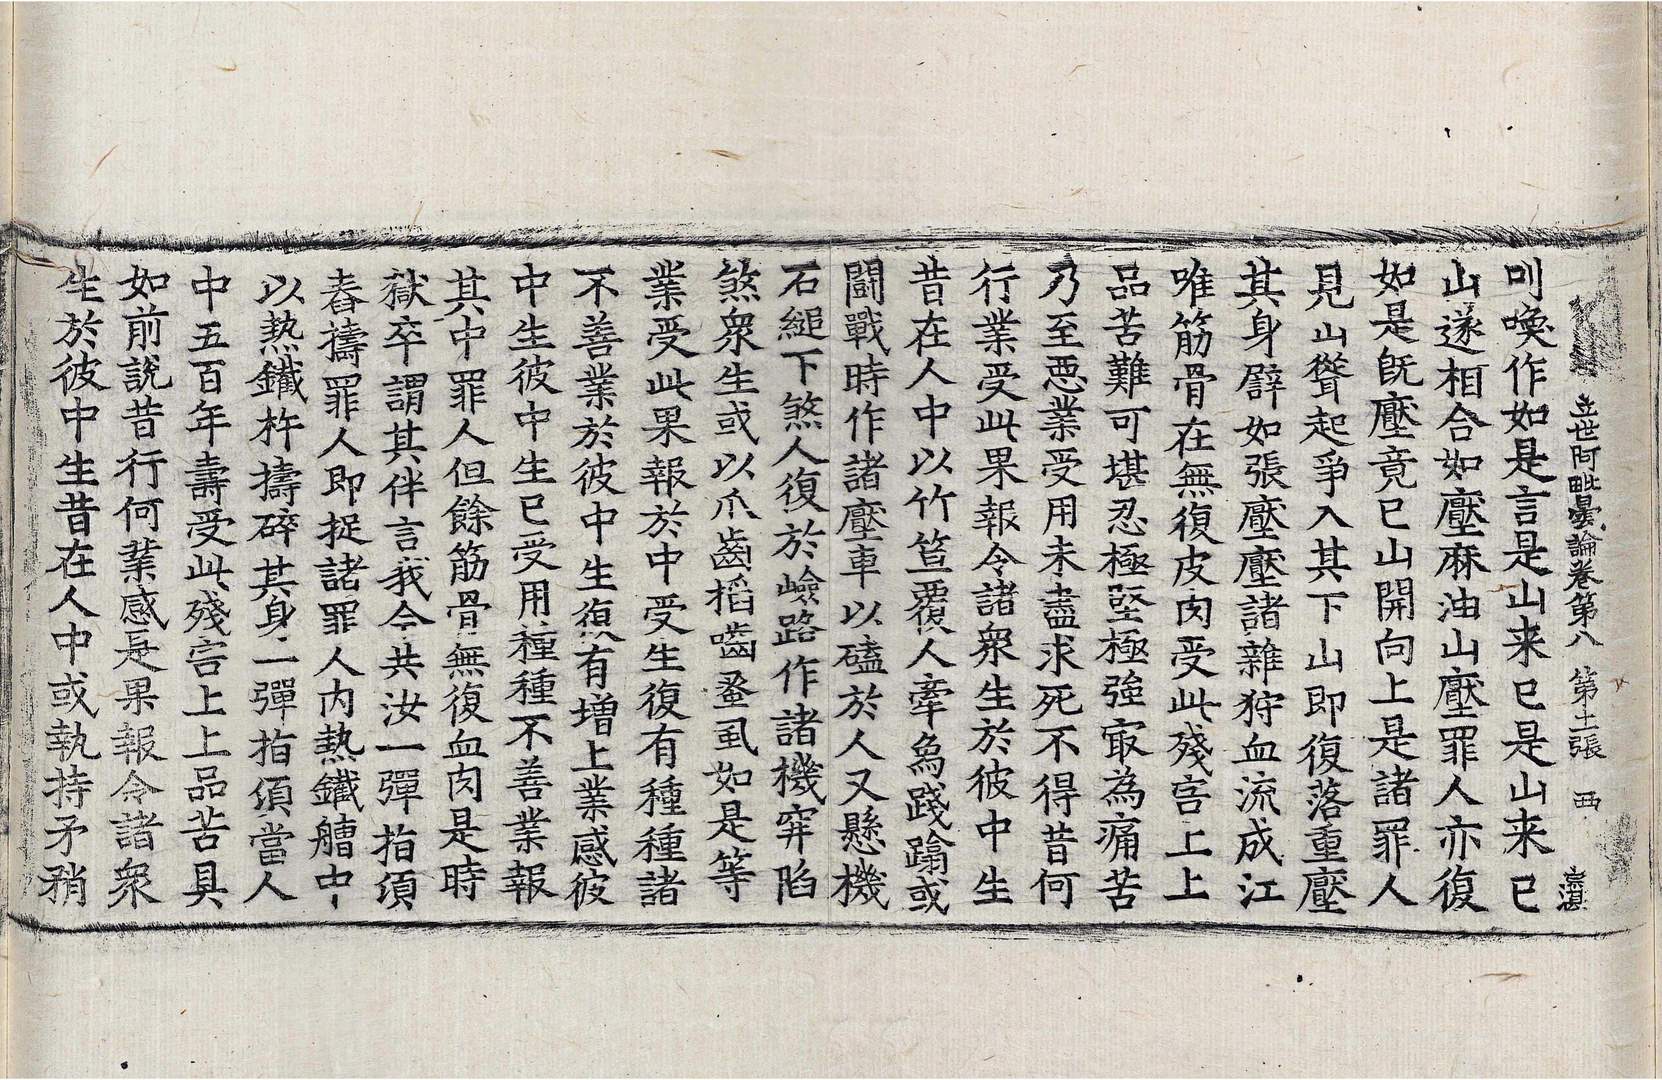 立世阿毗曇論卷第八 第十二張 西
叫喚作如是言是山来已是山来已
山遂相合如壓麻油山壓罪人亦復
如是既壓竟已山開向上是諸罪人
見山聳起爭入其下山即復落重壓
其身譬如張壓壓諸雜狩血流成江
唯筋骨在無復皮肉受此殘害上上
品苦難可堪忍極堅極強㝡為痛苦
乃至悪業受用未盡求死不得昔何
行業受此果報令諸衆生於彼中生
昔在人中以竹笪覆人牽象踐蹹或
鬪戰時作諸壓車以磕於人又懸機
石縋下煞人復於嶮路作諸機穽陷
煞衆生或以爪齒搯嚙蚤虱如是等
業受此果報於中受生復有種種諸
不善業於彼中生復有增上業感彼
中生彼中生已受用種種不善業報
其中罪人但餘筋骨無復血肉是時
獄卒謂其伴言我今共汝一彈指須
舂擣罪人即捉諸罪人内熱鐵艚中
以熱鐵杵擣碎其身一彈指傾當人
中五百年壽受此殘害上上品苦具
如前說昔行何業感是果報令諸衆
生於彼中生昔在人中或執持矛矟